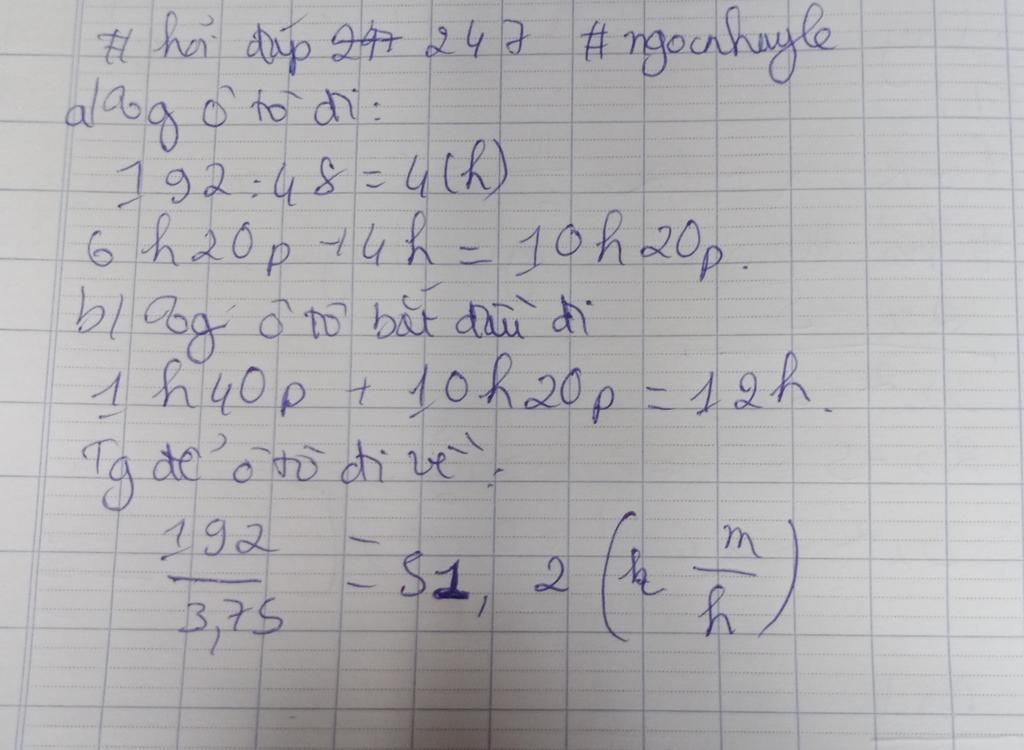 # hỏi đáp 247 247 #ngocnhuyle
a/ Tg ô tô đi:
192 : 48 = 4 (h)
6 h 20p + 4h = 10h 20p.
b/ Tg ô tô bắt đầu đi
1 h 40p + 10h 20p = 12h.
Tg để ô tô đi về:
192/3,75 = 51, 2 (k m/h)